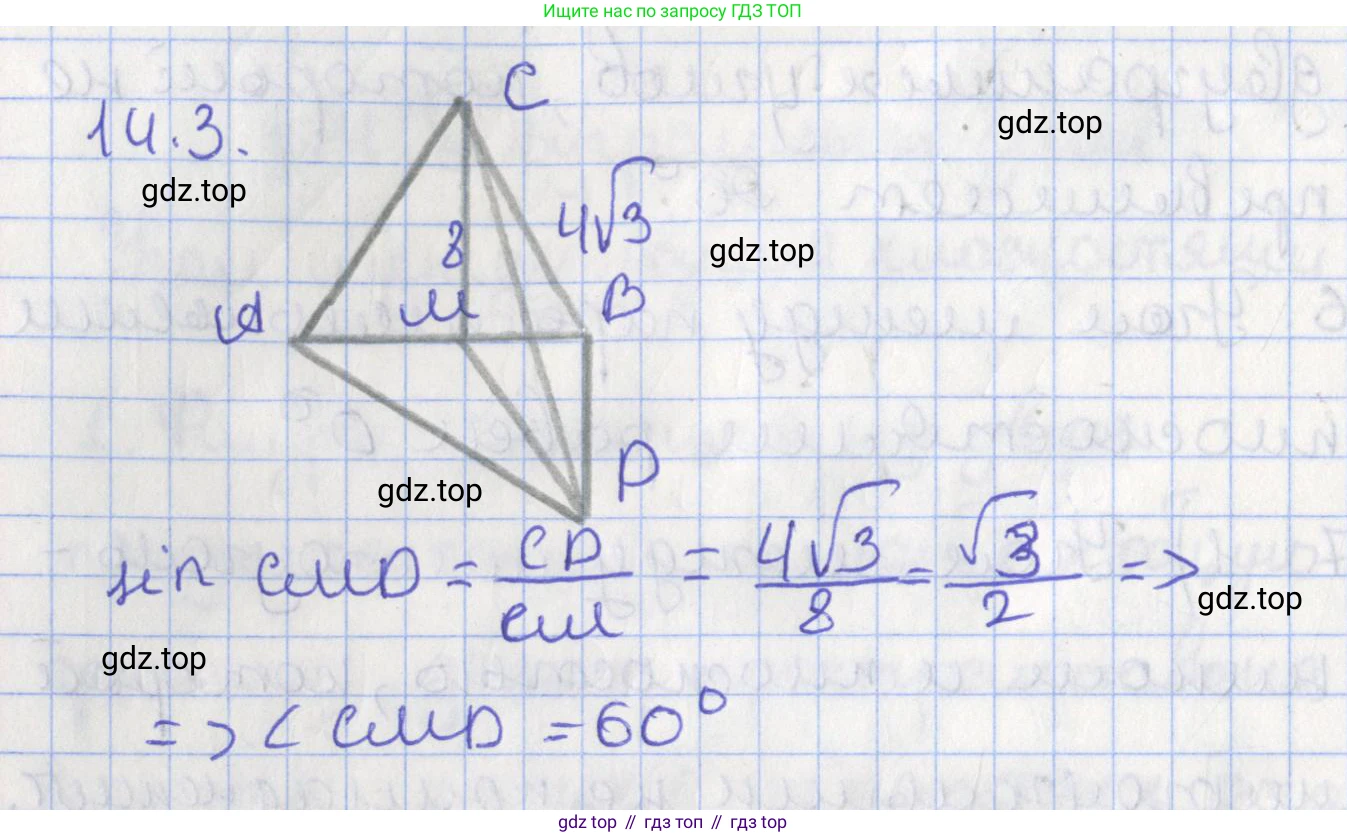 Ищите нас по запросу ГДЗ ТОП
C
14.3.
gdz.top
gdz.top
4√3
8
gdz.top
M
B
A
D
gdz.top
sin CMD = CD/CM = 4√3/8 = √3/2 =>
gdz.top
gdz.top
=> < CMD = 60°
gdz top // гдз топ // гдз top